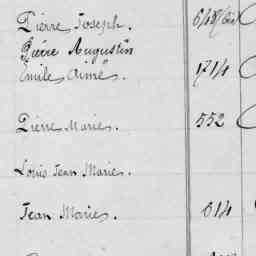 Pierre Joseph.
Pierre Augustin
Emile Aimé. 1714
Pierre Marie. 552
Louis Jean Marie.
Jean Marie. 614